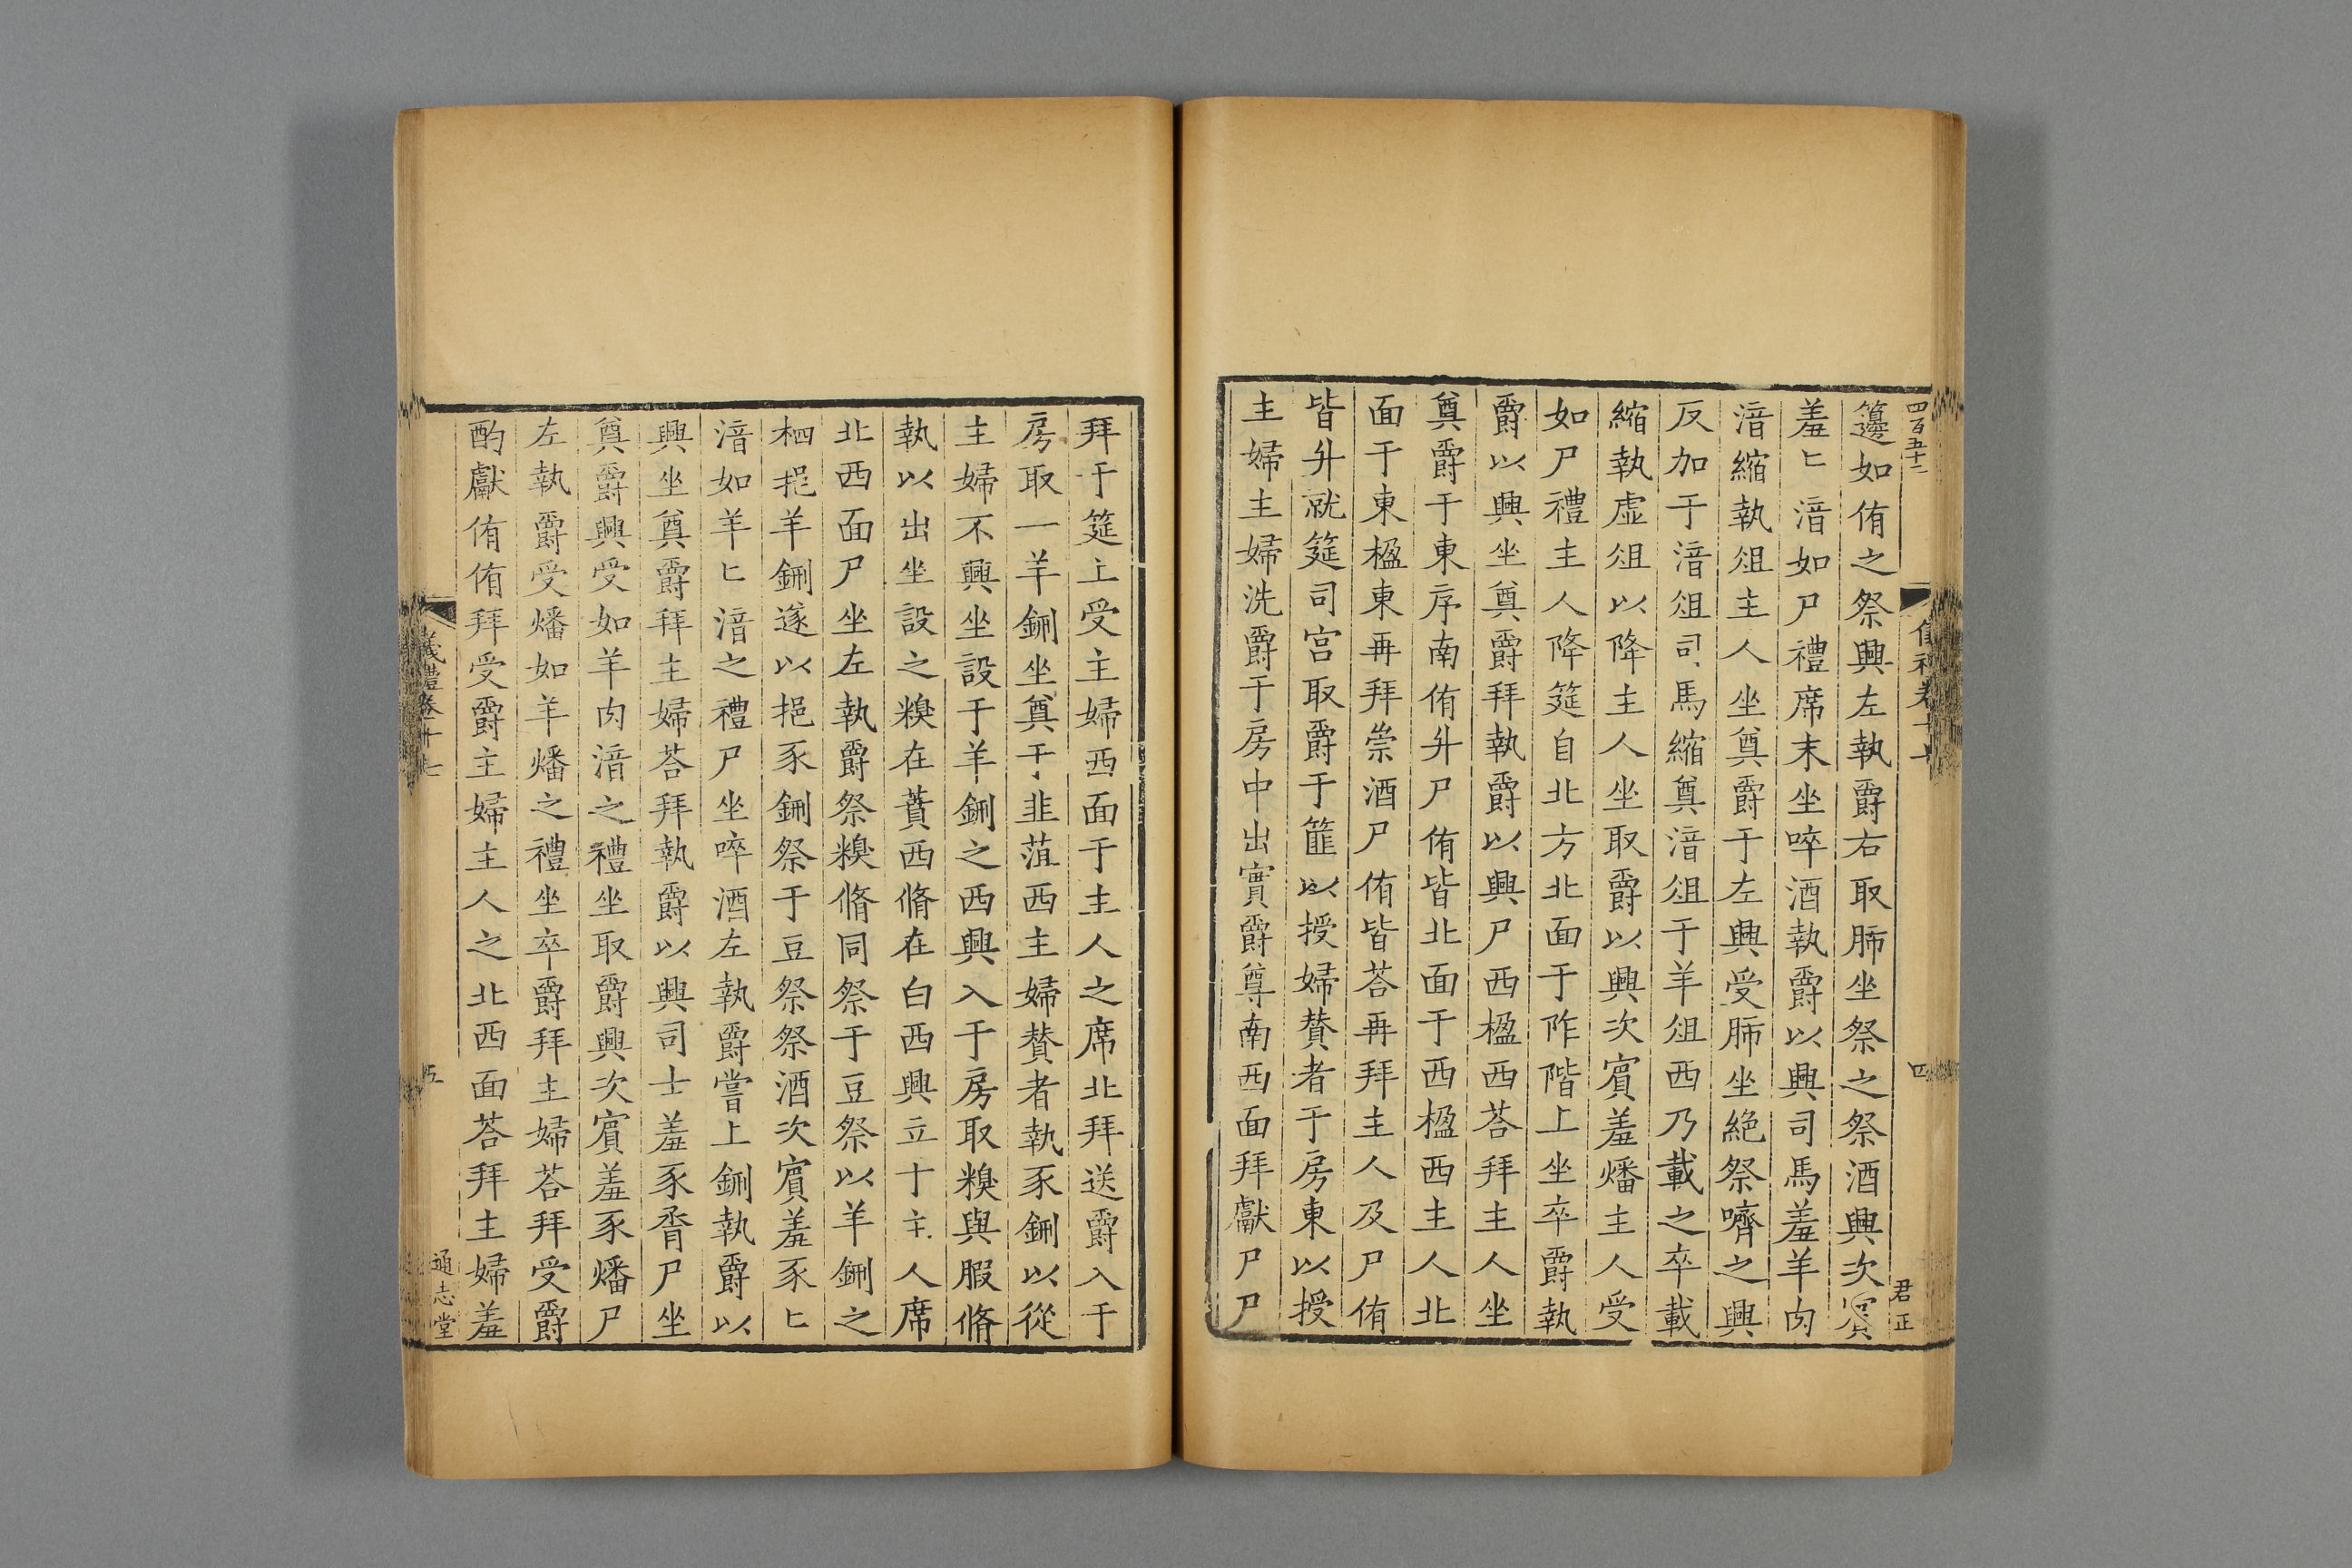 四百五十二
籩如侑之祭興左執爵右取肺坐祭之祭酒興次賔
羞匕湆如尸禮席末坐啐酒執爵以興司馬羞羊肉
湆縮執俎主人坐奠爵于左興受肺坐絶祭嚌之興
反加于湆俎司馬縮奠湆俎于羊俎西乃載之卒載
縮執虛俎以降主人坐取爵以興次賔羞燔主人受
如尸禮主人降筵自北方北面于阼階上坐卒爵執
爵以興坐奠爵拜執爵以興尸西楹西荅拜主人坐
奠爵于東序南侑升尸侑皆北面于西楹西主人北
面于東楹東再拜崇酒尸侑皆荅再拜主人及尸侑
皆升就筵司宫取爵于篚以授婦贊者于房東以授
主婦主婦洗爵于房中出實爵尊南西面拜獻尸尸
四
君正
拜于筵上受主婦西面于主人之席北拜送爵入于
房取一羊鉶坐奠于韭菹西主婦贊者執豕鉶以從
主婦不興坐設于羊鉶之西興入于房取糗與腶脩
執以出坐設之糗在蕡西脩在白西興立于主人席
北西面尸坐左執爵祭糗脩同祭于豆祭以羊鉶之
柶挹羊鉶遂以挹豕鉶祭于豆祭祭酒次賔羞豕匕
湆如羊匕湆之禮尸坐啐酒左執爵嘗上鉶執爵以
興坐奠爵拜主婦荅拜執爵以興司士羞豕脀尸坐
奠爵興受如羊肉湆之禮坐取爵興次賔羞豕燔尸
左執爵受燔如羊燔之禮坐卒爵拜主婦荅拜受爵
酌獻侑侑拜受爵主婦主人之北西面荅拜主婦羞
儀禮卷十七
五
通志堂